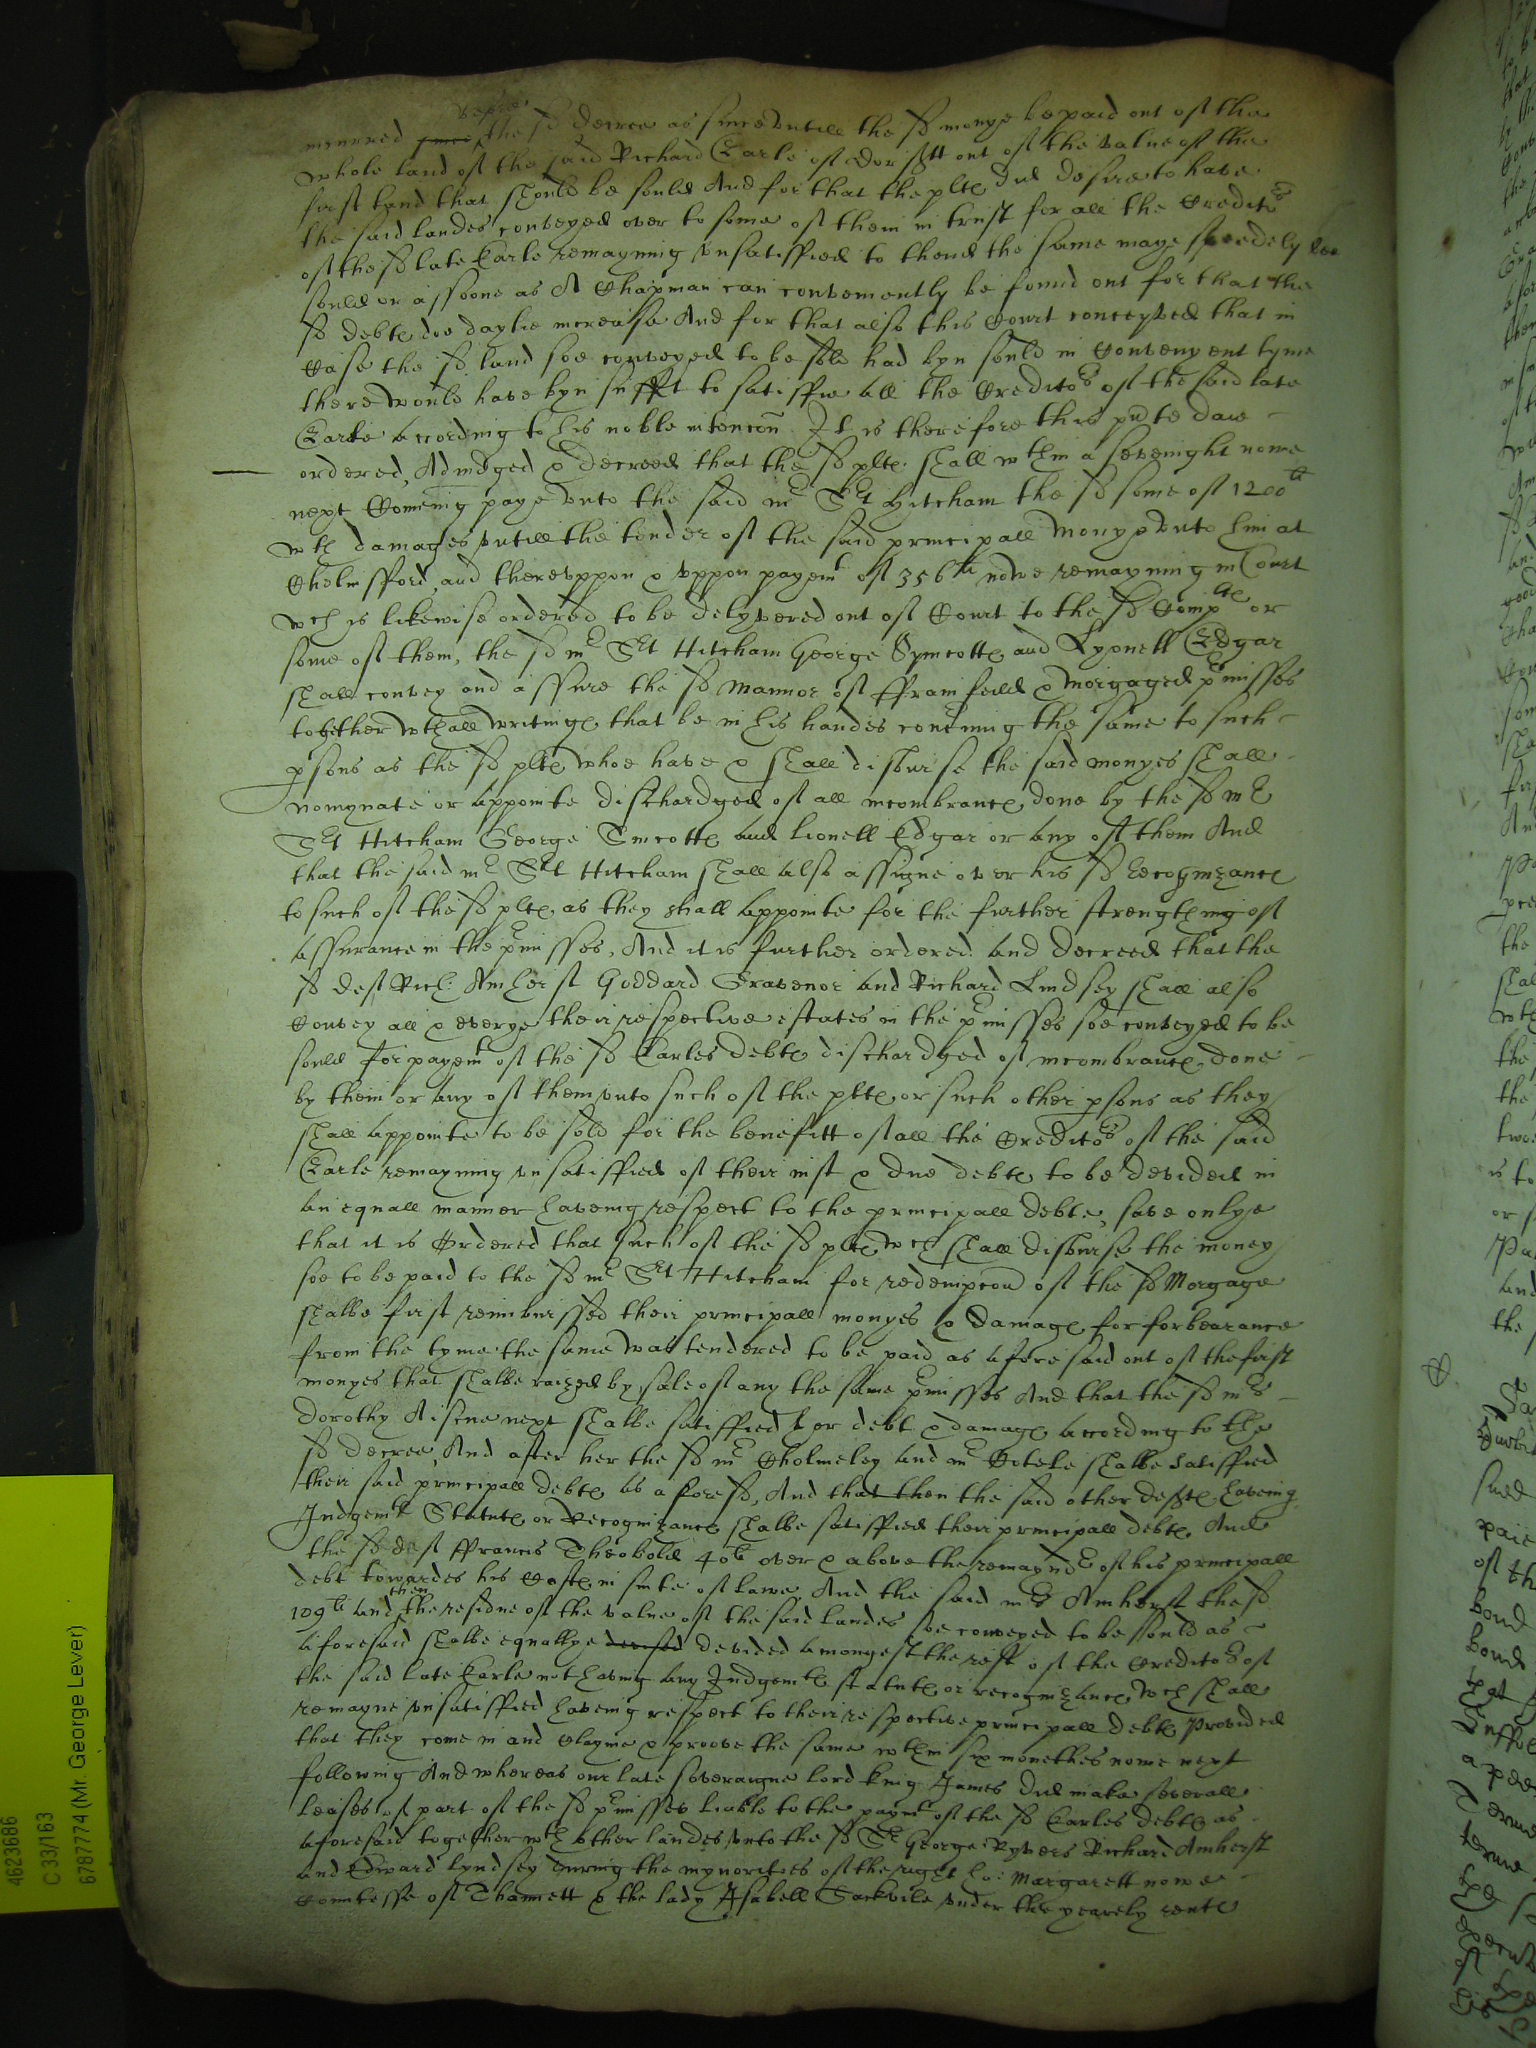 before
incurred since the sd decree as since untill the sd monye be paid out of the
whole land of the said Richard Earle of Dorsett out of the value of the
first land that should be sould And for that the pltes did desire to have
the said landes conveyed over to some of them in trust for all the Creditors
of the sd late Earle remayning unsatisfied to thend the same maye speedely bee
sould or assoone as A Chapman can conveniently be found out for that the
sd debtes doe daylie increase And for that also this Court conceyved that in
Case the sd land soe conveyed to be sold had byn sould in Convenyent tyme
there would have byn suffit to satisfie all the Creditors of the said late
Earle According to his noble intencon It is therefore this pnte daie
ordered, Adiudged & decreed that the sd pltes shall wthin a sevenight nowe
next Comeing paye unto the said mr Srt Hitcham the sd some of 1200li
wth damages untill the tender of the said principall monye unto him at
Chelmsford, and thereuppon & uppon payemt of 356li nowe remayning in Court
wch is likewise ordered to be delyvered out of Court to the sd Complts or
some of them, the sd mr Srt Hitcham George Symcotts and Lyonell Edgar
shall convey and assure the sd Mannor of fframfeild & morgaged pmisses
together wth all writinges that be in his handes concrning the same to such
psons as the sd pltes whoe have & shall disburse the said monyes shall
nomynate or Appointe dischardged of all incombrances done by the sd mr
Srt Hitcham George Simcotts and Lionell Edgar or any of them And
that the said mr Srt Hitcham shall also assigne over his sd Recognizance
to such of the sd pltes as they shall Appointe for the further strengthning of
Assurance in the pmisses, And it is further ordered and Decreed that the
sd deft Rich: Amherst Goddard Gravenor and Richard Lindsey shall also
Convey all & everye their respective estates in the pmisses soe conveyed to be
sould for payemt of the sd Earles debtes dischardged of incombrances done
by them or any of them unto such of the pltes or such other psons as they
shall Appointe to be sold for the benefitt of all the Creditors of the said
Earle remayning unsatisfied of their iust & due debtes to be devided in
an equall manner haveing respect to the principall debte, save onlye
that it is Ordered that such of the sd pltes wch shall disburse the money
soe to be paid to the sd mr Srt Hitcham for redempcon of the sd Morgage
shalbe first reimburssed their principall monyes & damages for forbearance
from the tyme the same was tendered to be paid as aforesaid out of the first
monyes that shalbe raized by sale of any the same pmisses And that the sd mrs
Dorothy next shalbe satisfied her debt & damages according to the
sd decree, And after her the sd mr Cholmeley and mr shalbe satisfied
their said principall debtes as aforesd, And that then the said other deftes haveing
Iudgemts Statutes or Recognizances shalbe satisfied their principall debtes And
the sd deft ffrancis Theobold 40li over & above the remaynder of his principall
debt towardes his Costes in suite of lawe, And the said mrs Amherst the sd
then
109li And the residue of the value of the said landes soe conveyed to be sould as
aforesaid shalbe equallye devised devided amongest the rest of the Creditors of
the said late Earle not having any Iudgemte statute or recognizances wch shall
remayne unsatisfied haveing respect to their respective principall debtes Provided
that they come in and Clayme & proove the same wthin six monethes nowe next
following And whereas our late soveraigne lord king James did make severall
leases of part of the sd pmisses liable to the paymt of the sd Earles debtes as
aforesaid together wth other landes unto the sd Sr George Ryvers Richard Amherst
and Edward Lyndsey during the mynorities of the right ho: Margarett nowe
Countesse of Thannett & the lady Isabell Sackvile under the yearely rente
4623686
C 33/163
6787774 (Mr. George Lever)